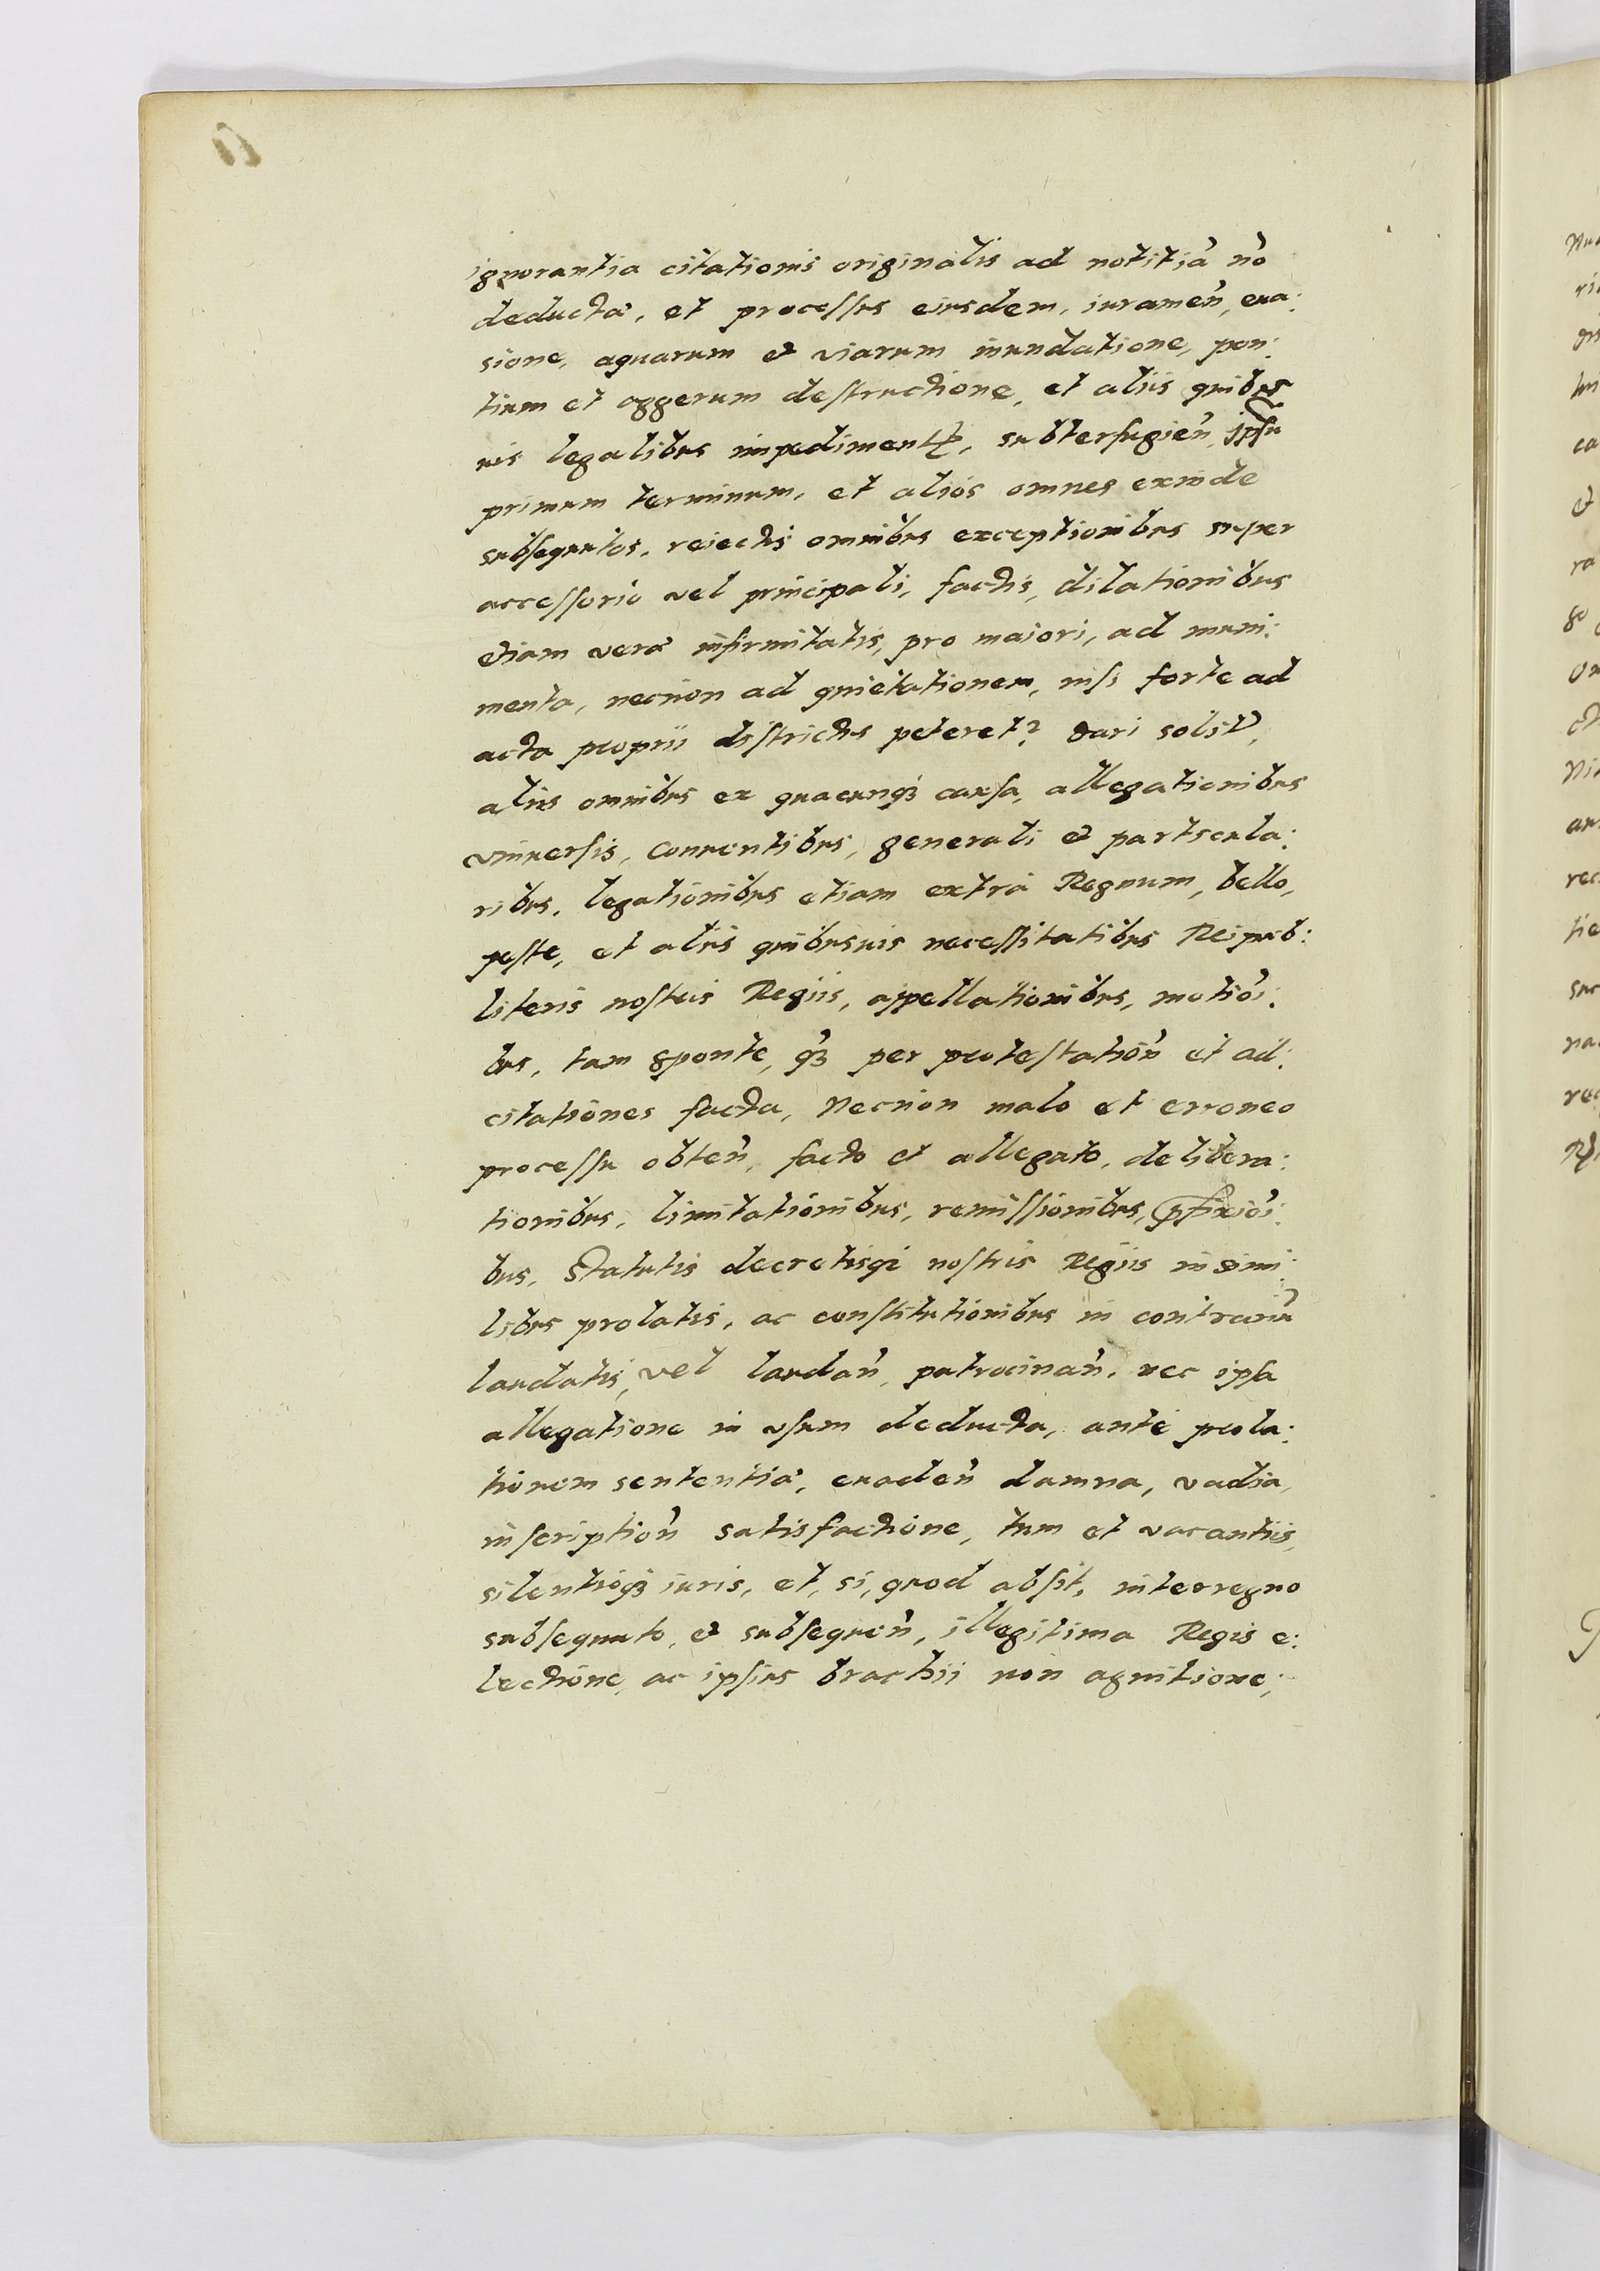 ignorantia citationis originalis ad notitiã nõ
deductæ, et processus eiusdem, iuramen̄, eua:
sione, aquarum et viarum inundatione, pon:
tium et aggerum destructione, et aliis quibus
uis legalibus impediment̄, subterfugien̄, ipsũ
primum terminum, et alios omnes exinde
subsequutos, reiectis omnibus exceptionibus super
accessorio vel principali, factis, dilationibus
etiam veræ infirmitatis, pro maiori, ad muni:
menta, necnon ad quietationem, nisi forte ad
acta proprii districtus peteret᷑ dari solit̄,
aliis omnibus ex quacunqȝ causa, allegationibus
vniuersis, conuentibus, generali et particula:
ribus, legationibus etiam extra Regnum, bello,
peste, et aliis quibusuis necessitatibus Reipub:
literis nostris Regiis, appellationibus, motiõi:
bus, tam sponte, qȝ per protestatiõn et ad:
citationes facta, Necnon malo et erroneo
processu obten̄, facto et allegato, delibera:
tionibus, limitationibus, remissionibus, p̄fixiõi:
bus, Statutis decretisqȝ nostris Regiis in simi:
libus prolatis, ac constitutionibus in contrariũ
laudatis, vel laudan̄, patrocinan̄, nec ipsa
allegatione in vsum deducta, ante prola:
tionem sententiæ, euaden̄ damna, vadia,
inscription̄ satisfactione, tum et vacantiis,
silentioqȝ iuris, et, si, quod absit, interregno
subsequuto, et subsequen̄, illegitima Regis e:
lectione, ac ipsius brachii non agnitione;